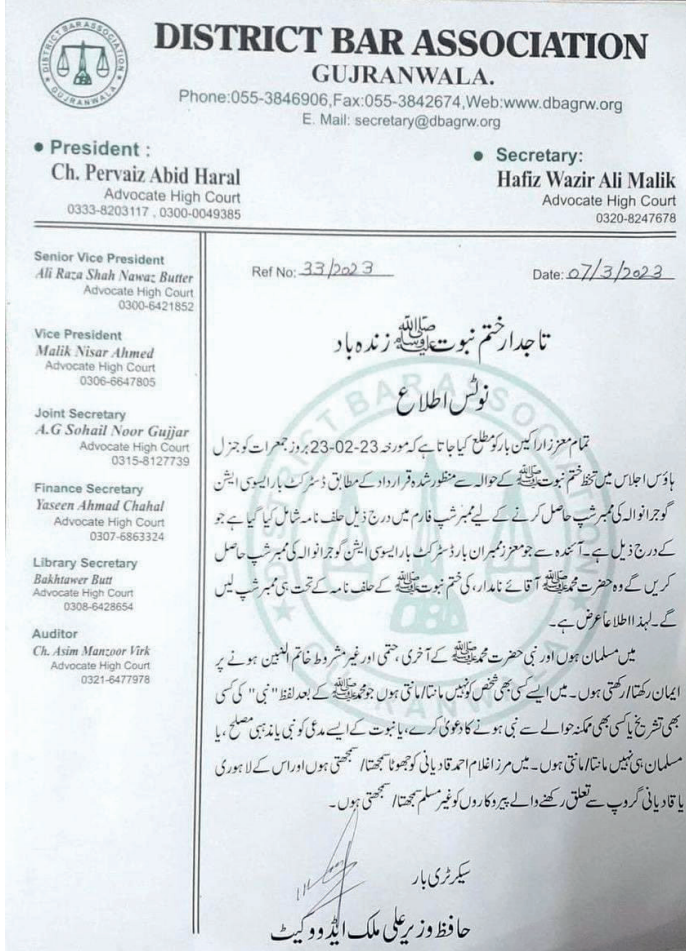 DISTRICT BAR ASSOCIATION
GUJRANWALA
DISTRICT BAR ASSOCIATION
GUJRANWALA.
Phone:055-3846906,Fax:055-3842674,Web:www.dbagrw.org
E. Mail: secretary@dbagrw.org
President :
Ch. Pervaiz Abid Haral
Advocate High Court
0333-8203117 , 0300-0049385
Secretary:
Hafiz Wazir Ali Malik
Advocate High Court
0320-8247678
Senior Vice President
Ali Raza Shah Nawaz Butter
Advocate High Court
0300-6421852
Vice President
Malik Nisar Ahmed
Advocate High Court
0306-6647805
Joint Secretary
A.G Sohail Noor Gujjar
Advocate High Court
0315-8127739
Finance Secretary
Yaseen Ahmad Chahal
Advocate High Court
0307-6863324
Library Secretary
Bakhtawer Butt
Advocate High Court
0308-6428654
Auditor
Ch. Asim Manzoor Virk
Advocate High Court
0321-6477978
Ref No: 33/2023
Date: 07/3/2023
تاجدار ختم نبوت ﷺ زندہ باد
نوٹس اطلاع
تمام معزز اراکین بار کو مطلع کیا جاتا ہے کہ مورخہ 23-02-23 بروز جمعرات کو جنرل
ہاؤس اجلاس میں تحفظ ختم نبوت ﷺ کے حوالہ سے منظور شدہ قرارداد کے مطابق ڈسٹرکٹ بار ایسوسی ایشن
گوجرانوالہ کی ممبرشپ حاصل کرنے کے لیے ممبرشپ فارم میں درج ذیل حلف نامہ شامل کیا گیا ہے جو
کے درج ذیل ہے۔ آئندہ سے جو معزز ممبران بار ڈسٹرکٹ بار ایسوسی ایشن گوجرانوالہ کی ممبرشپ حاصل
کریں گے وہ حضرت محمد ﷺ آقائے نامدار، کی ختم نبوت ﷺ کے حلف نامہ کے تحت ہی ممبرشپ لیں
گے۔ لہذا اطلاعاً عرض ہے۔
میں مسلمان ہوں اور نبی حضرت محمد ﷺ کے آخری، حتمی اور غیر مشروط خاتم النبین ہونے پر
ایمان رکھتا/رکھتی ہوں۔ میں ایسے کسی بھی شخص کو نہیں مانتا/مانتی ہوں جو محمد ﷺ کے بعد لفظ "نبی" کی کسی
بھی تشریح یا کسی بھی ممکنہ حوالے سے نبی ہونے کا دعویٰ کرے، یا نبوت کے ایسے مدعی کو نبی یا مذہبی مصلح، یا
مسلمان ہی نہیں مانتا/مانتی ہوں۔ میں مرزا غلام احمد قادیانی کو جھوٹا سمجھتا/سمجھتی ہوں اور اس کے لاہوری
یا قادیانی گروپ سے تعلق رکھنے والے پیروکاروں کو غیر مسلم سمجھتا/سمجھتی ہوں۔
سیکرٹری بار
حافظ وزیر علی ملک ایڈووکیٹ